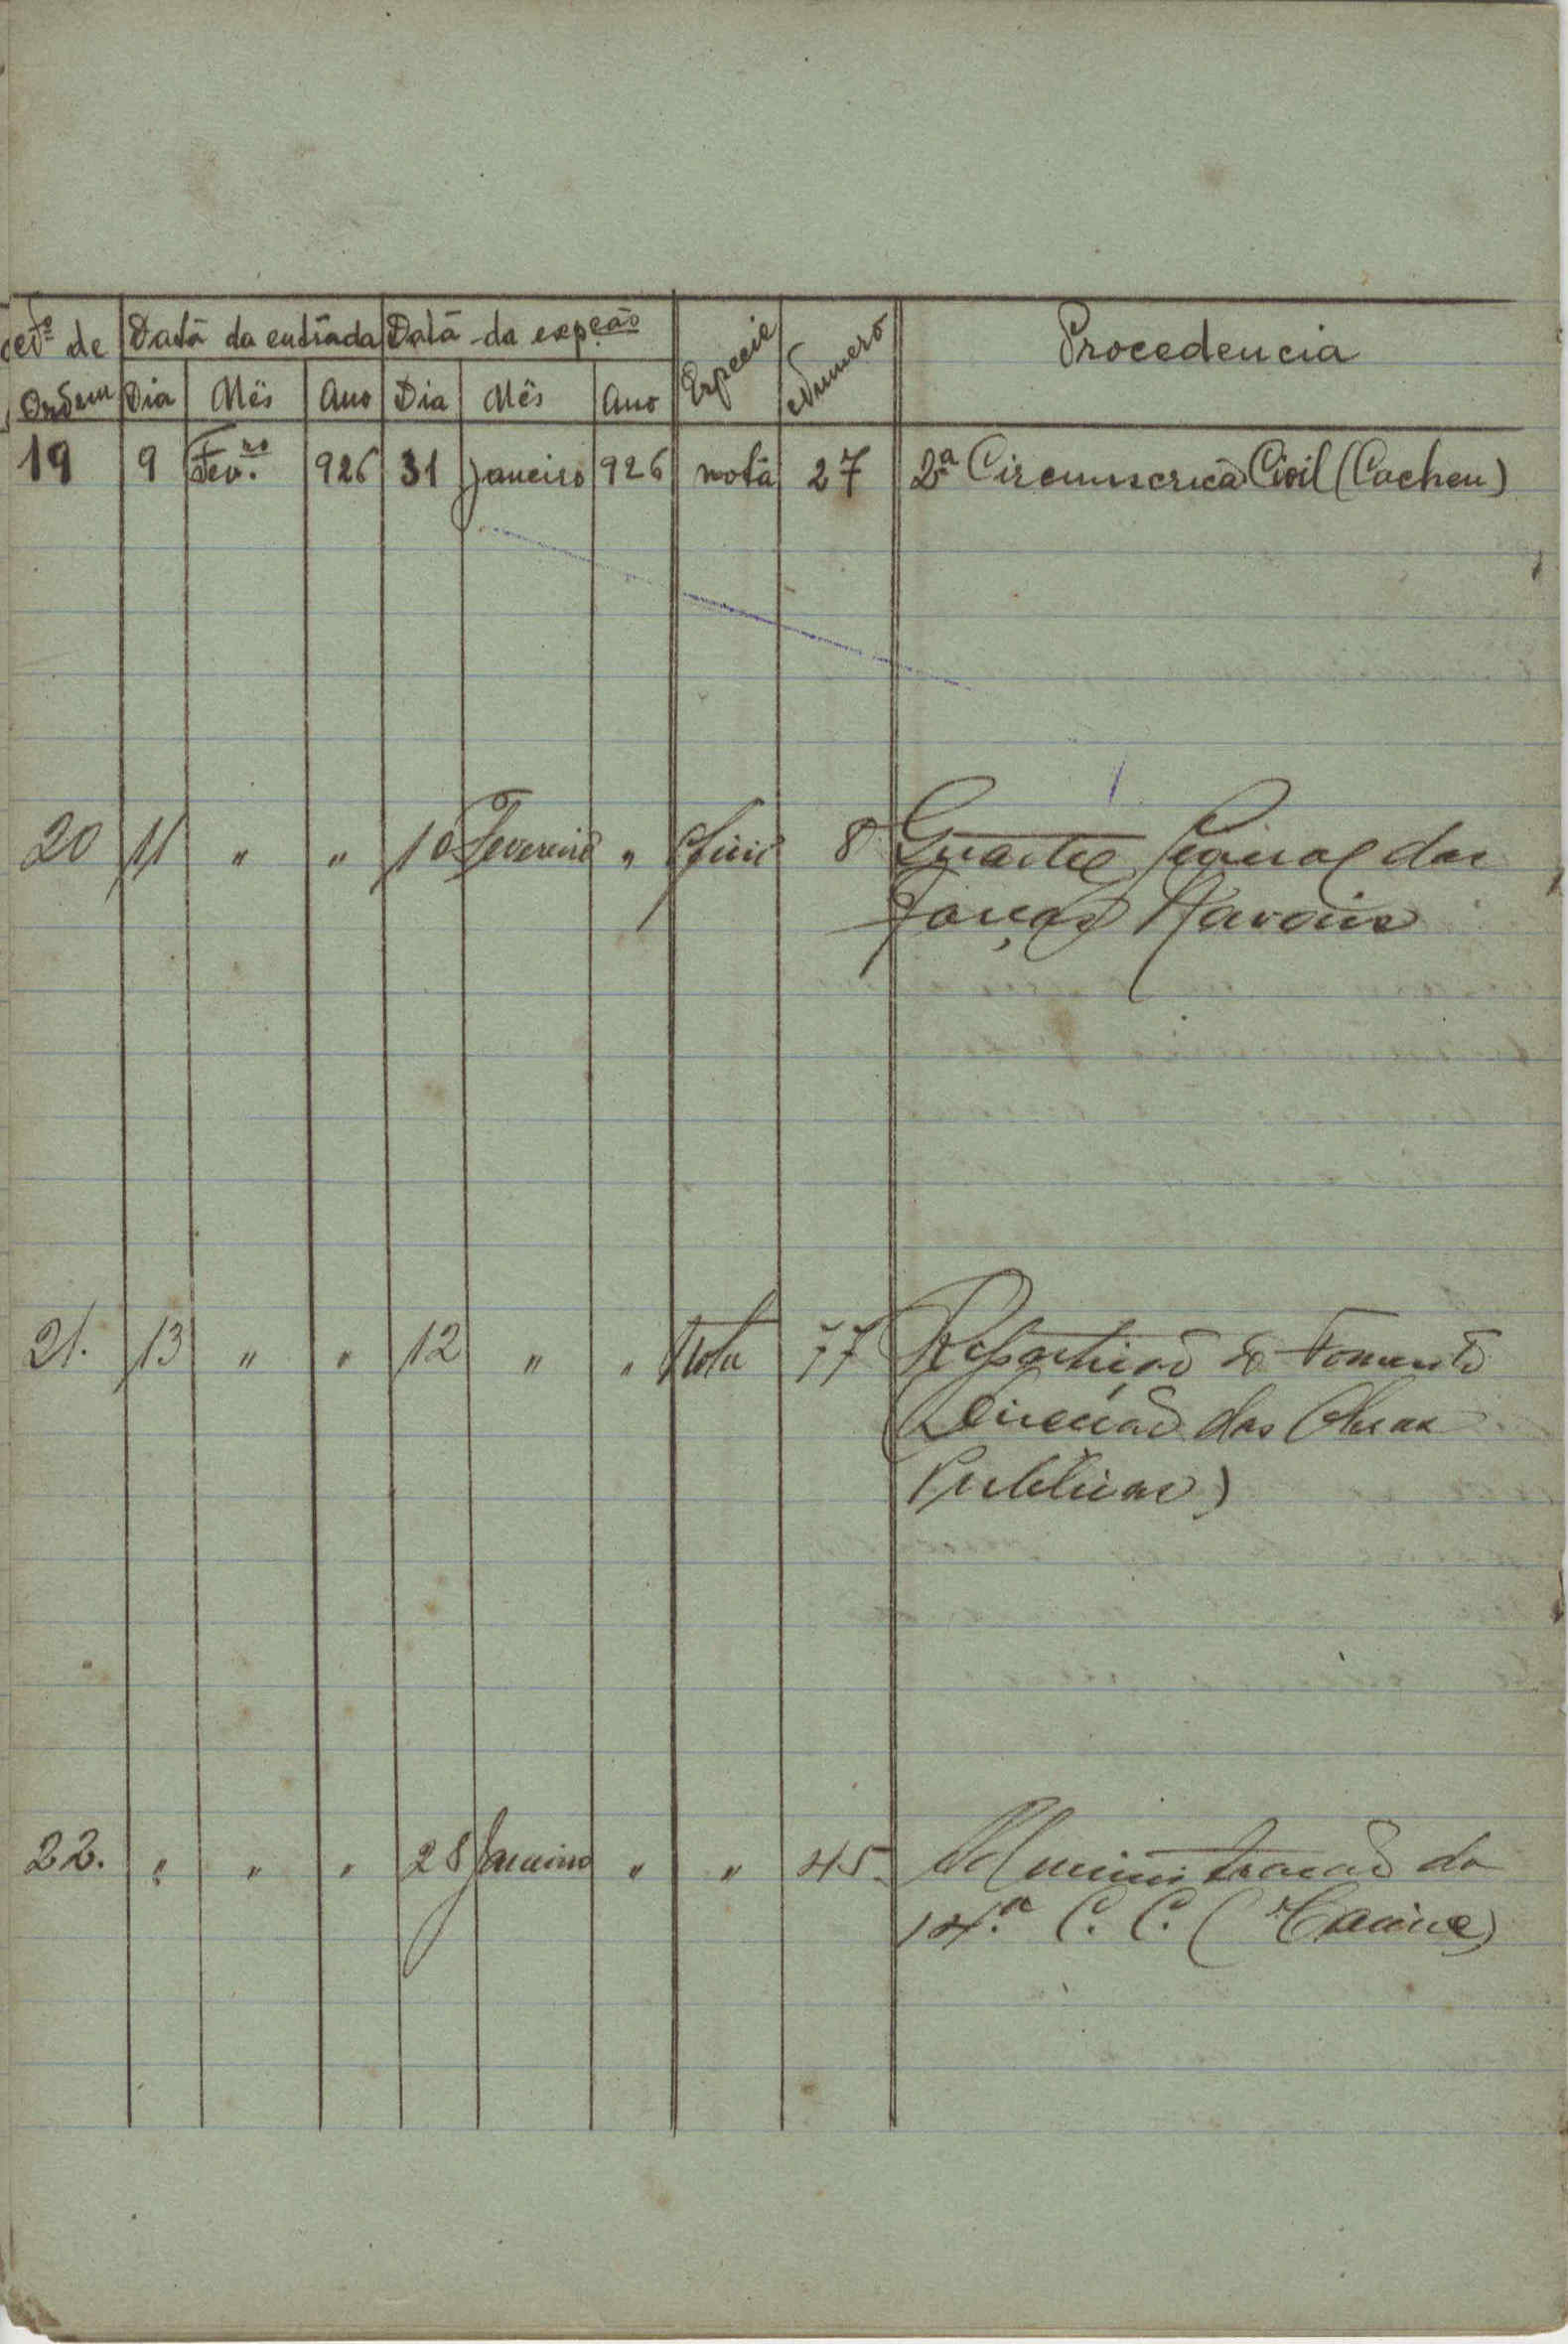 Nº de Ordem | Datā da entrāda | Datā da expção | Especie | Numero | Procedencia
Dia | Mês | Ano | Dia | Mês | Ano
19 | 9 | Fev.ro | 926 | 31 | Janeiro | 926 | notā | 27 | 2ª Circumscricā Civil (Cacheu)
20 | 11 | " | " | 10 | Fevereiro | " | Oficio | 8 | Quartel das
Forças Navais
21. | 13 | " | " | 12 | " | " | Nota | 77 | Repartição do Fomento
(Direcção das Obras
Publicas)
22. | " | " | " | 28 | Janeiro | " | " | 45. | Administracão da
14.ª C. C. (Cacine)